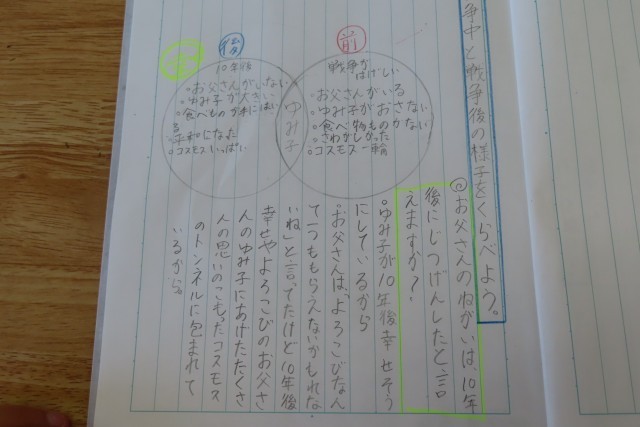 争中と戦争後の様子をくらべよう。
◎お父さんのねがいは、10年
後にじつげんしたと言
えますか?
前
戦争が
はげしい
・お父さんがいる
・ゆみ子がおさない
・食べ物ものがない
・さわがしかった
・コスモス一輪
ゆみ子
後
10年後
・お父さんがいない
・ゆみ子が大きい
・食べもの
る
・平和になった
・コスモスいっぱい
・ゆみ子が10年後幸せそう
にしているから
・お父さんは、「よろこびなん
て一つももらえないかもしれな
いね」と言ってたけど10年後
幸せやよろこびのお父さ
んのゆみ子にあげたたくさ
んの思いのこもったコスモス
のトンネルに包まれて
いるから。